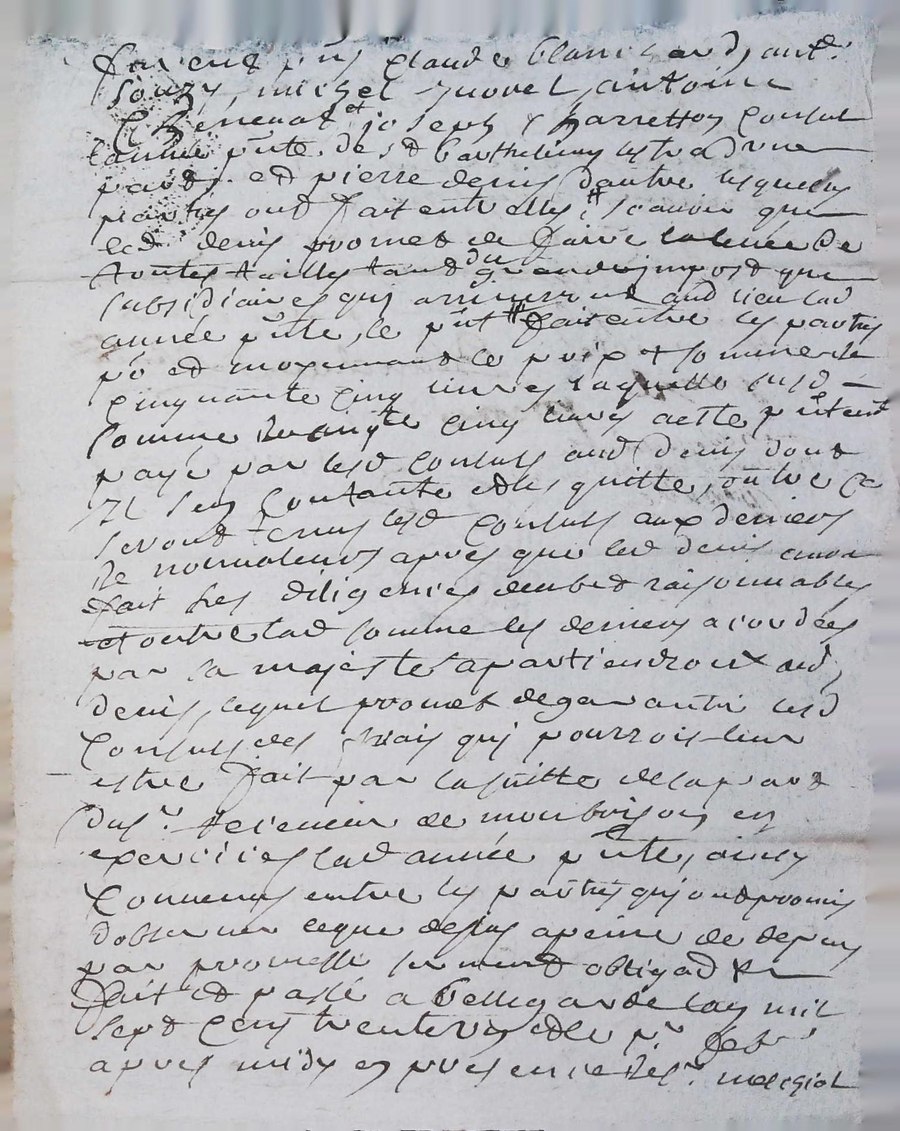 furent pnts claude blanchard, ant.
souzy, michel juovel, antoine
Chenevat et joseph Charretton Consuls
lannee pnte. de st barthelemy lestra dune
part, et pierre denis dautre lesquelles
parties ont fait entrelles # scavoir que
led. denis promet de faire la levee de
toutes tailles tant du grand impost que
subsidiaires qui arriveront aud lieu lad
année pnte, le pnt # fait entre les parties
po et moyennant le prix et somme de
cinquante cinq livres laquelle susd
somme vingte cinq livres a este pntent
payé par lesd consuls aud denis dont
il sen contante et les quitte, outre ce
seront tenus lesd Consuls aux deniers
de nonvaleurs apres que led denis aura
fait ses diligences deubes raisonnables
et outre lad somme les deniers accordées
par sa majesté apartiendront aud
denis, lequel promet de garantir lesd
Consuls des frais qui pourroit leur
estre fait par la suitte de la part
du sr. receveur de monbrison en
exercices lad année pnte, ainsy
Convenus entre les parties qui ont promis
dobserver ce que dessus a peine de depens
par promesse serment obligaon &c
fait et passé a bellegarde lan mil
sept cens trente un et le pr. feb.
apres midy en presence de sr. merigiot